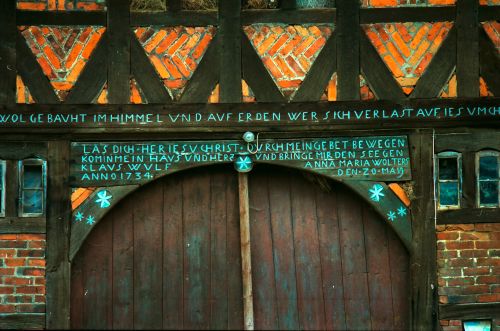 WOL GEBAVHT IM HIMMEL VND AVF ERDEN WER SICH VERLAST AVF IESVM CH
LAS DICH HER IESV CHRIST DVRCH MEIN GEBET BEWEGEN
KOM IN MEIN HAVS VND HERS VND BRINGE MIR DEN SEEGEN
KLAVS WVLF ANNA MARIA WOLTERS
ANNO 1734 DEN 20 MAIJ